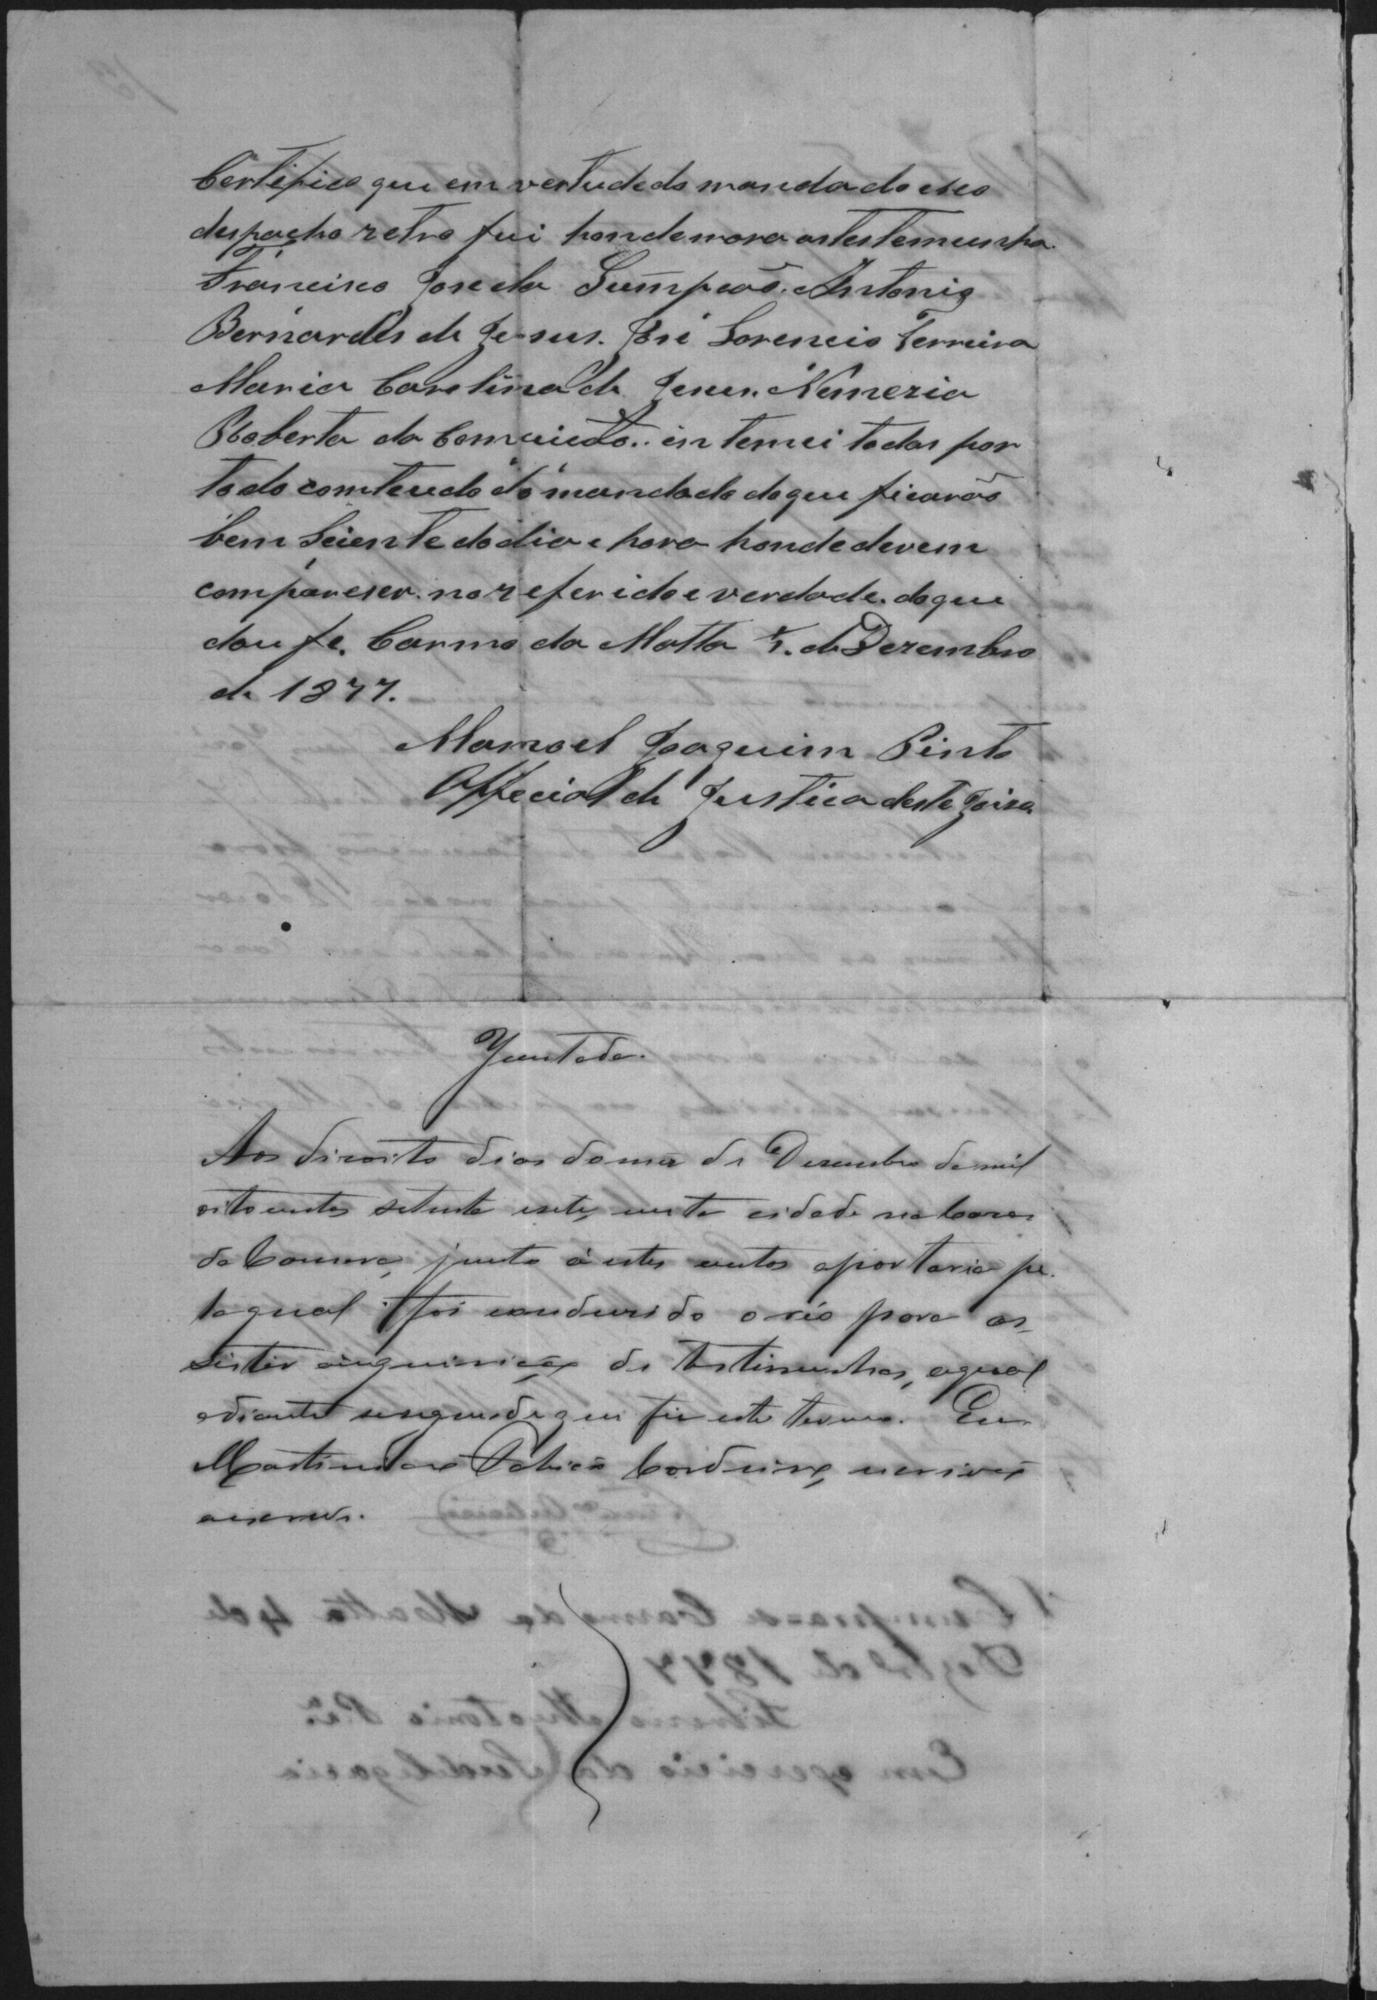 Certifico que em vertude do mandado e seo
despacho retro fui honde mora as testemunha
Francisco Jose da Sumpcaõ. Antonio
Bernardes de Jesus. José Lorencio Ferreira
Maria Carolina de Jesus. Nemezia
Roberta da Comceicão. intemei todas por
todo comteudo do mandado do que ficarão
bem Sciente do dia e hora honde devem
compareser. no referido e verdade. do que
dou fé. Carmo da Matta 7. de Dezembro
de 1877.
Manoel Joaquim Pinto
Offecial de Justica deste Joiso
Juntada.
Aos dizoito dias do mez de Dezembro de mil
oitocentos setenta e sete, nesta cidade na Caza
da Camara, junto á estes autos a portaria pe-
la qual foi conduzido o réo para as-
sistir a inquirição de testimunhas, a qual
adiante se segue do que fiz este termo. Eu
Cordeiro, escrivão
escrevi.